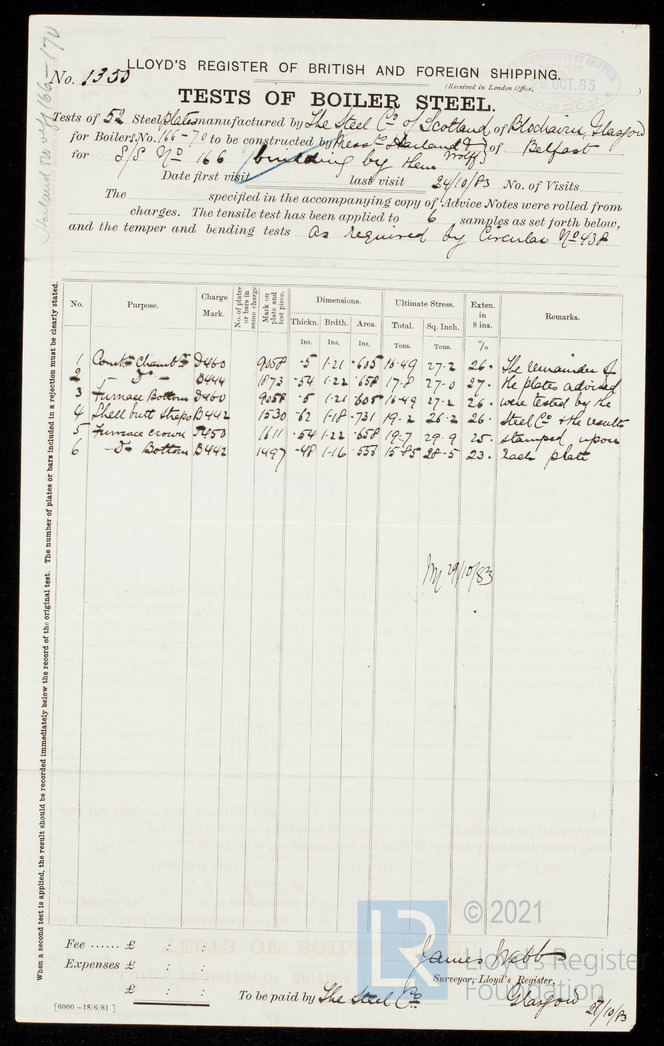 Harland Wolff 166-170
No. 1350
LLOYD'S REGISTER OF BRITISH AND FOREIGN SHIPPING.
(Received in London Office,
OCT. 83
TESTS OF BOILER STEEL.
Tests of 52 Steel plates manufactured by The Steel Co of Scotland of Blochairn, Glasgow
for Boilers No. 166-70 to be constructed by Messrs Harland & Wolff of Belfast
for S/S No 166 building by them
Date first visit last visit 24/10/83 No. of Visits
The specified in the accompanying copy of Advice Notes were rolled from
charges. The tensile test has been applied to 6 samples as set forth below,
and the temper and bending tests as required by Circular No 438
No. Purpose. Charge Mark. No. of plates or bars in same charge Mark on plate and test piece. Dimensions. Ultimate Stress. Exten. in 8 ins. Remarks.
Thickn. Brdth. Area. Total. Sq. Inch.
Ins. Ins. Tons. Tons. %
1 Combn Chambr D460 9058 .5 1.21 .605 16.49 27.2 26. The remainder of
2 - Do - B444 1873 .54 1.22 .658 17.8 27.0 27. the plates advised
3 Furnace Bottom D460 9058 .5 1.21 .605 16.49 27.2 26. were tested by the
4 Shell butt straps B442 1530 .62 1.18 .731 19.2 26.2 26. Steel Co & the results
5 Furnace crown 1611 .54 1.22 .658 19.7 29.9 25. stamped upon
6 - Do Bottom B442 1497 .48 1.16 .556 15.85 28.5 23. each plate
29/10/83
When a second test is applied, the result should be recorded immediately below the record of the original test. The number of plates or bars included in a rejection must be clearly stated.
Fee ...... £ : :
Expenses £ : :
£ : :
James Webb
Surveyor, Lloyd's Register,
To be paid by The Steel Co. Glasgow 27/10/83
[6000 -18/6/81]
LR
© 2021
Lloyd's Register
Foundation